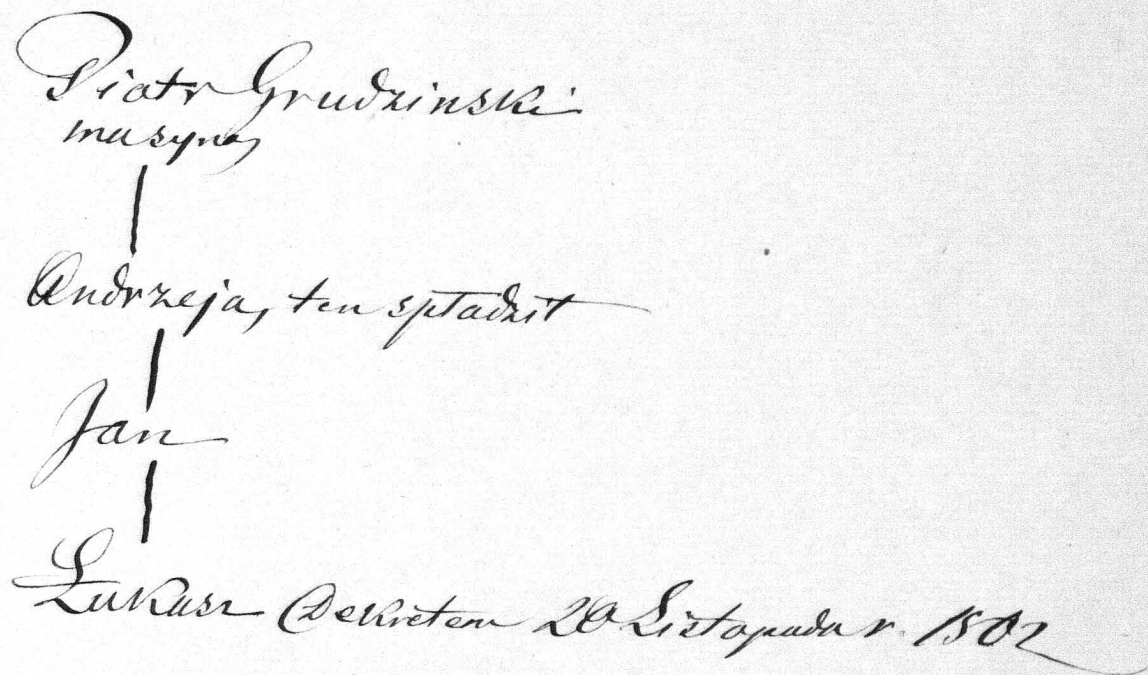 Piotr Grudzinski
ma syna
Andrzeja, ten spładził
Jan
Łukasz Dekretem 20 Listopada r. 1502